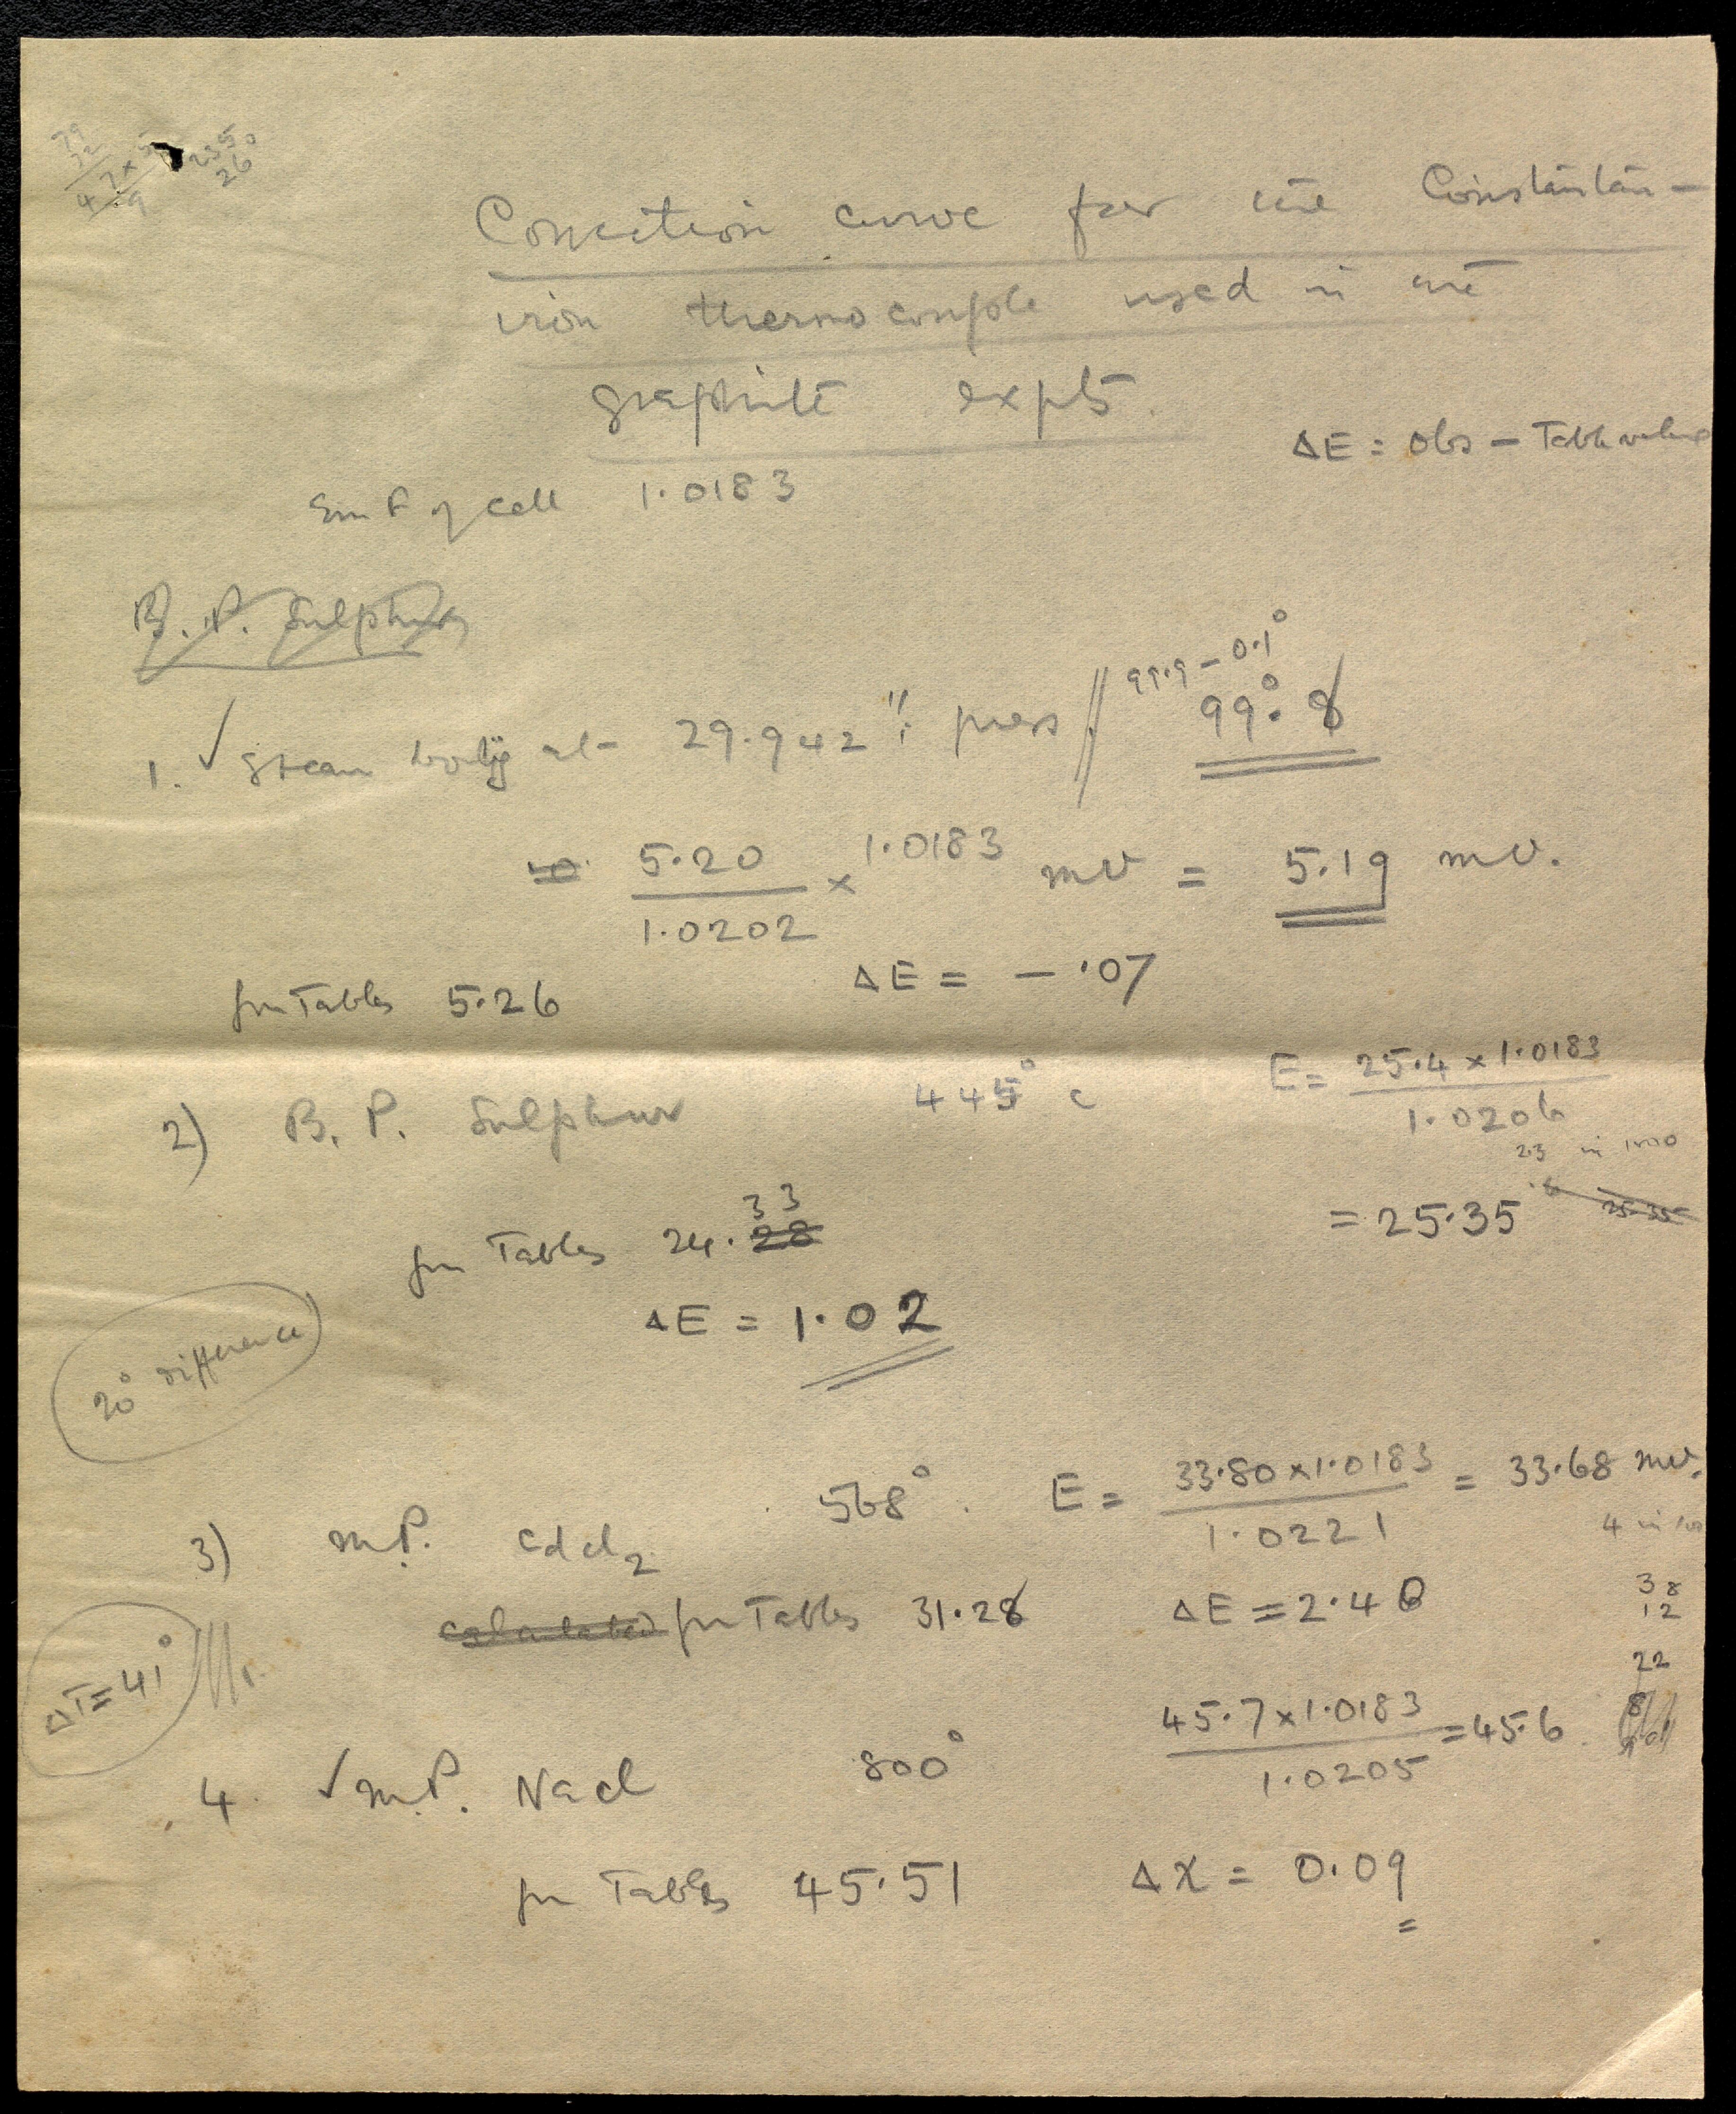 79
32
47 × 5
9
2350
26
Correction curve for the Constantan-
iron thermocouple used in the
graphite expts.
ΔE = Obs - Table value
Em F of cell 1.0183
B.P. Sulphur
99.9 - 0.1°
1. ✓ Steam boilg at 29.942" press // 99°.8
5.20 / 1.0202 × 1.0183 mv = 5.19 mv.
fm Tables 5.26 ΔE = - .07
2) B.P. Sulphur 445° c E = 25.4 × 1.0183 / 1.0206
23 in 1000
= 25.35 25.35
fm Tables 24.28 33
ΔE = 1.02
20° difference
3) m.P. CdCl2 568°. E = 33.80 × 1.0183 / 1.0221 = 33.68 mv.
calculated fm Tables 31.28 ΔE = 2.40
38
12
22
ΔT = 41°
4. ✓ m.P. NaCl 800° 45.7 × 1.0183 / 1.0205 = 45.6
fm Tables 45.51 ΔX = 0.09